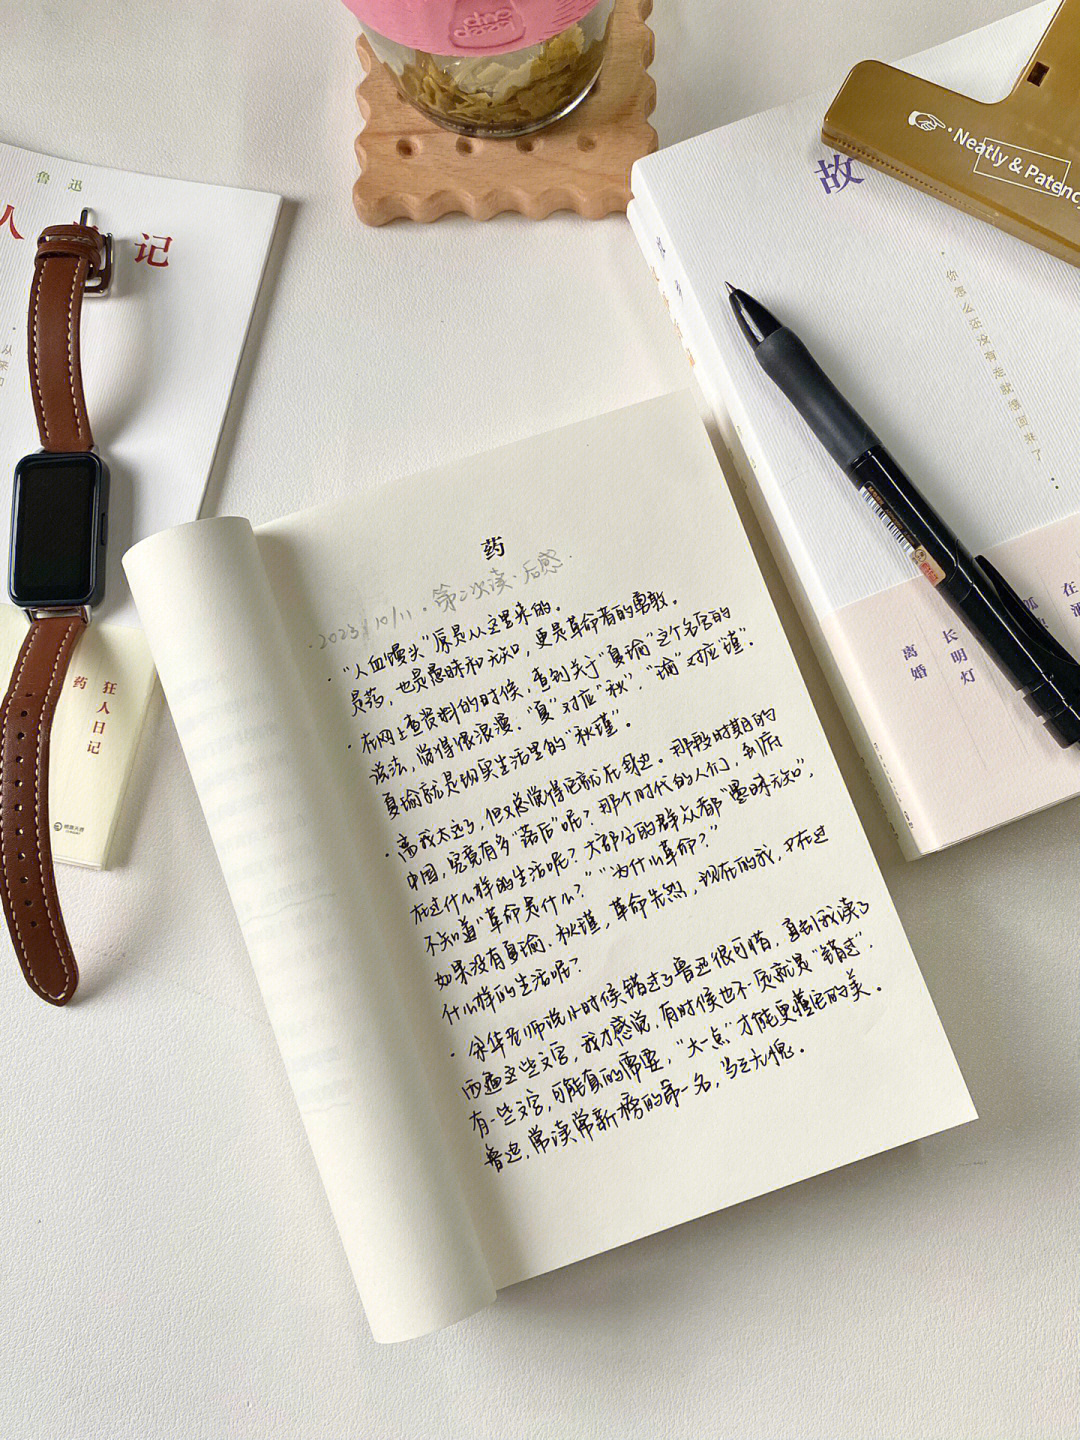 鲁迅
人 记
狂人日记
药
故
你怎么还没有走就想回来了
Neatly & Patency
长明灯
离婚
药
2023年10/11·第二次读·后感·
·“人血馒头”原是从这里来的。
是药，也是愚昧和无知，更是革命者的勇敢。
·在网上查资料的时候，查到关于“夏瑜”这个名字的
说法，觉得很浪漫、“夏”对应“秋”，“瑜”对应“瑾”。
夏瑜就是现实生活里的“秋瑾”。
·离我太远了，但又总觉得它就在身边。那段时期的
中国，究竟有多“落后”呢？那个时代的人们，到底
在过什么样的生活呢？大部分的群众都“愚昧无知”，
不知道“革命是什么？”“为什么革命？”
如果没有夏瑜、秋瑾，革命先烈，现在的我，又在过
什么样的生活呢？
·余华老师说小时候错过了鲁迅很可惜，直到我读了
两遍这些文字，我才感觉，有时候也不一定就是“错过”，
有一些文字，可能真的需要，“大一点”才能更懂它的美。
鲁迅，常读常新榜的第一名，当之无愧。